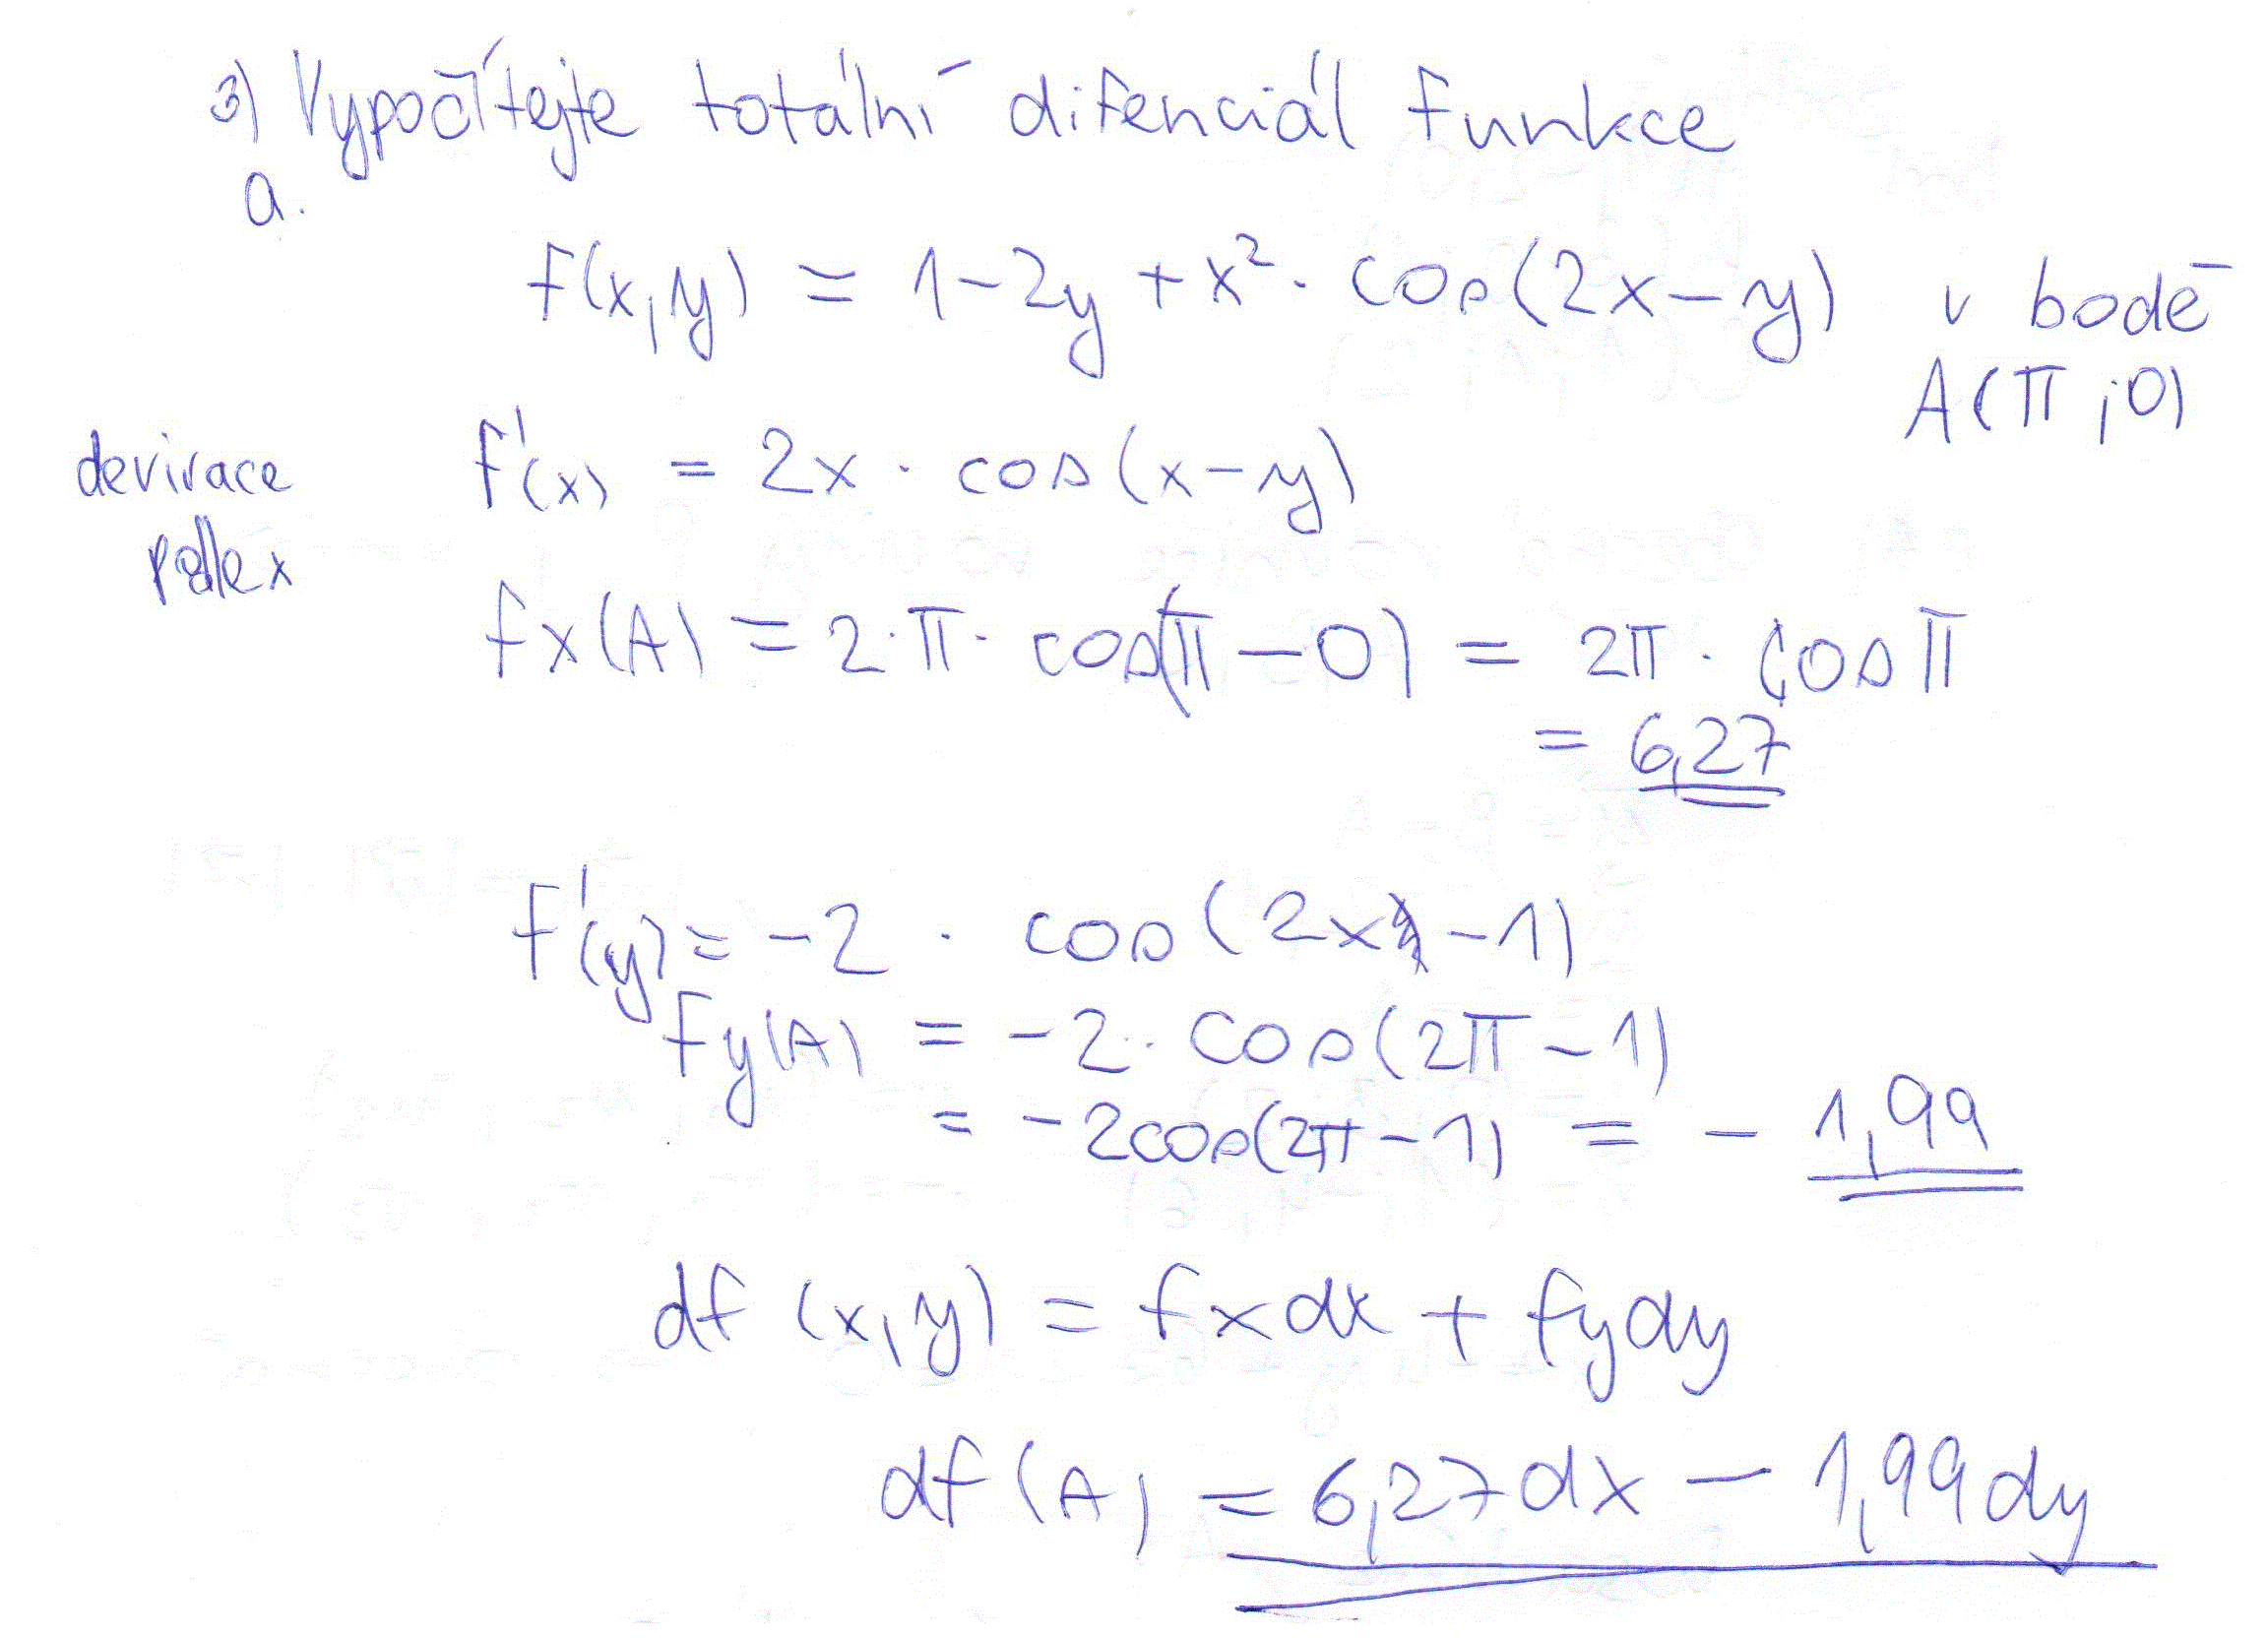 3) Vypočítejte totální difenciál funkce
a.
f(x,y) = 1-2y + x²· cos(2x-y) v bodě
A(π;0)
devirace
f'(x) = 2x · cos(x-y)
dle x
fx(A) = 2·π· cos(π-0) = 2π · cos π
= 6,27
f'(y) = -2 · cos(2x-1)
fy(A) = -2· cos(2π-1)
= -2cos(2π-1) = - 1,99
df (x,y) = fxdx + fydy
df (A) = 6,27dx - 1,99dy